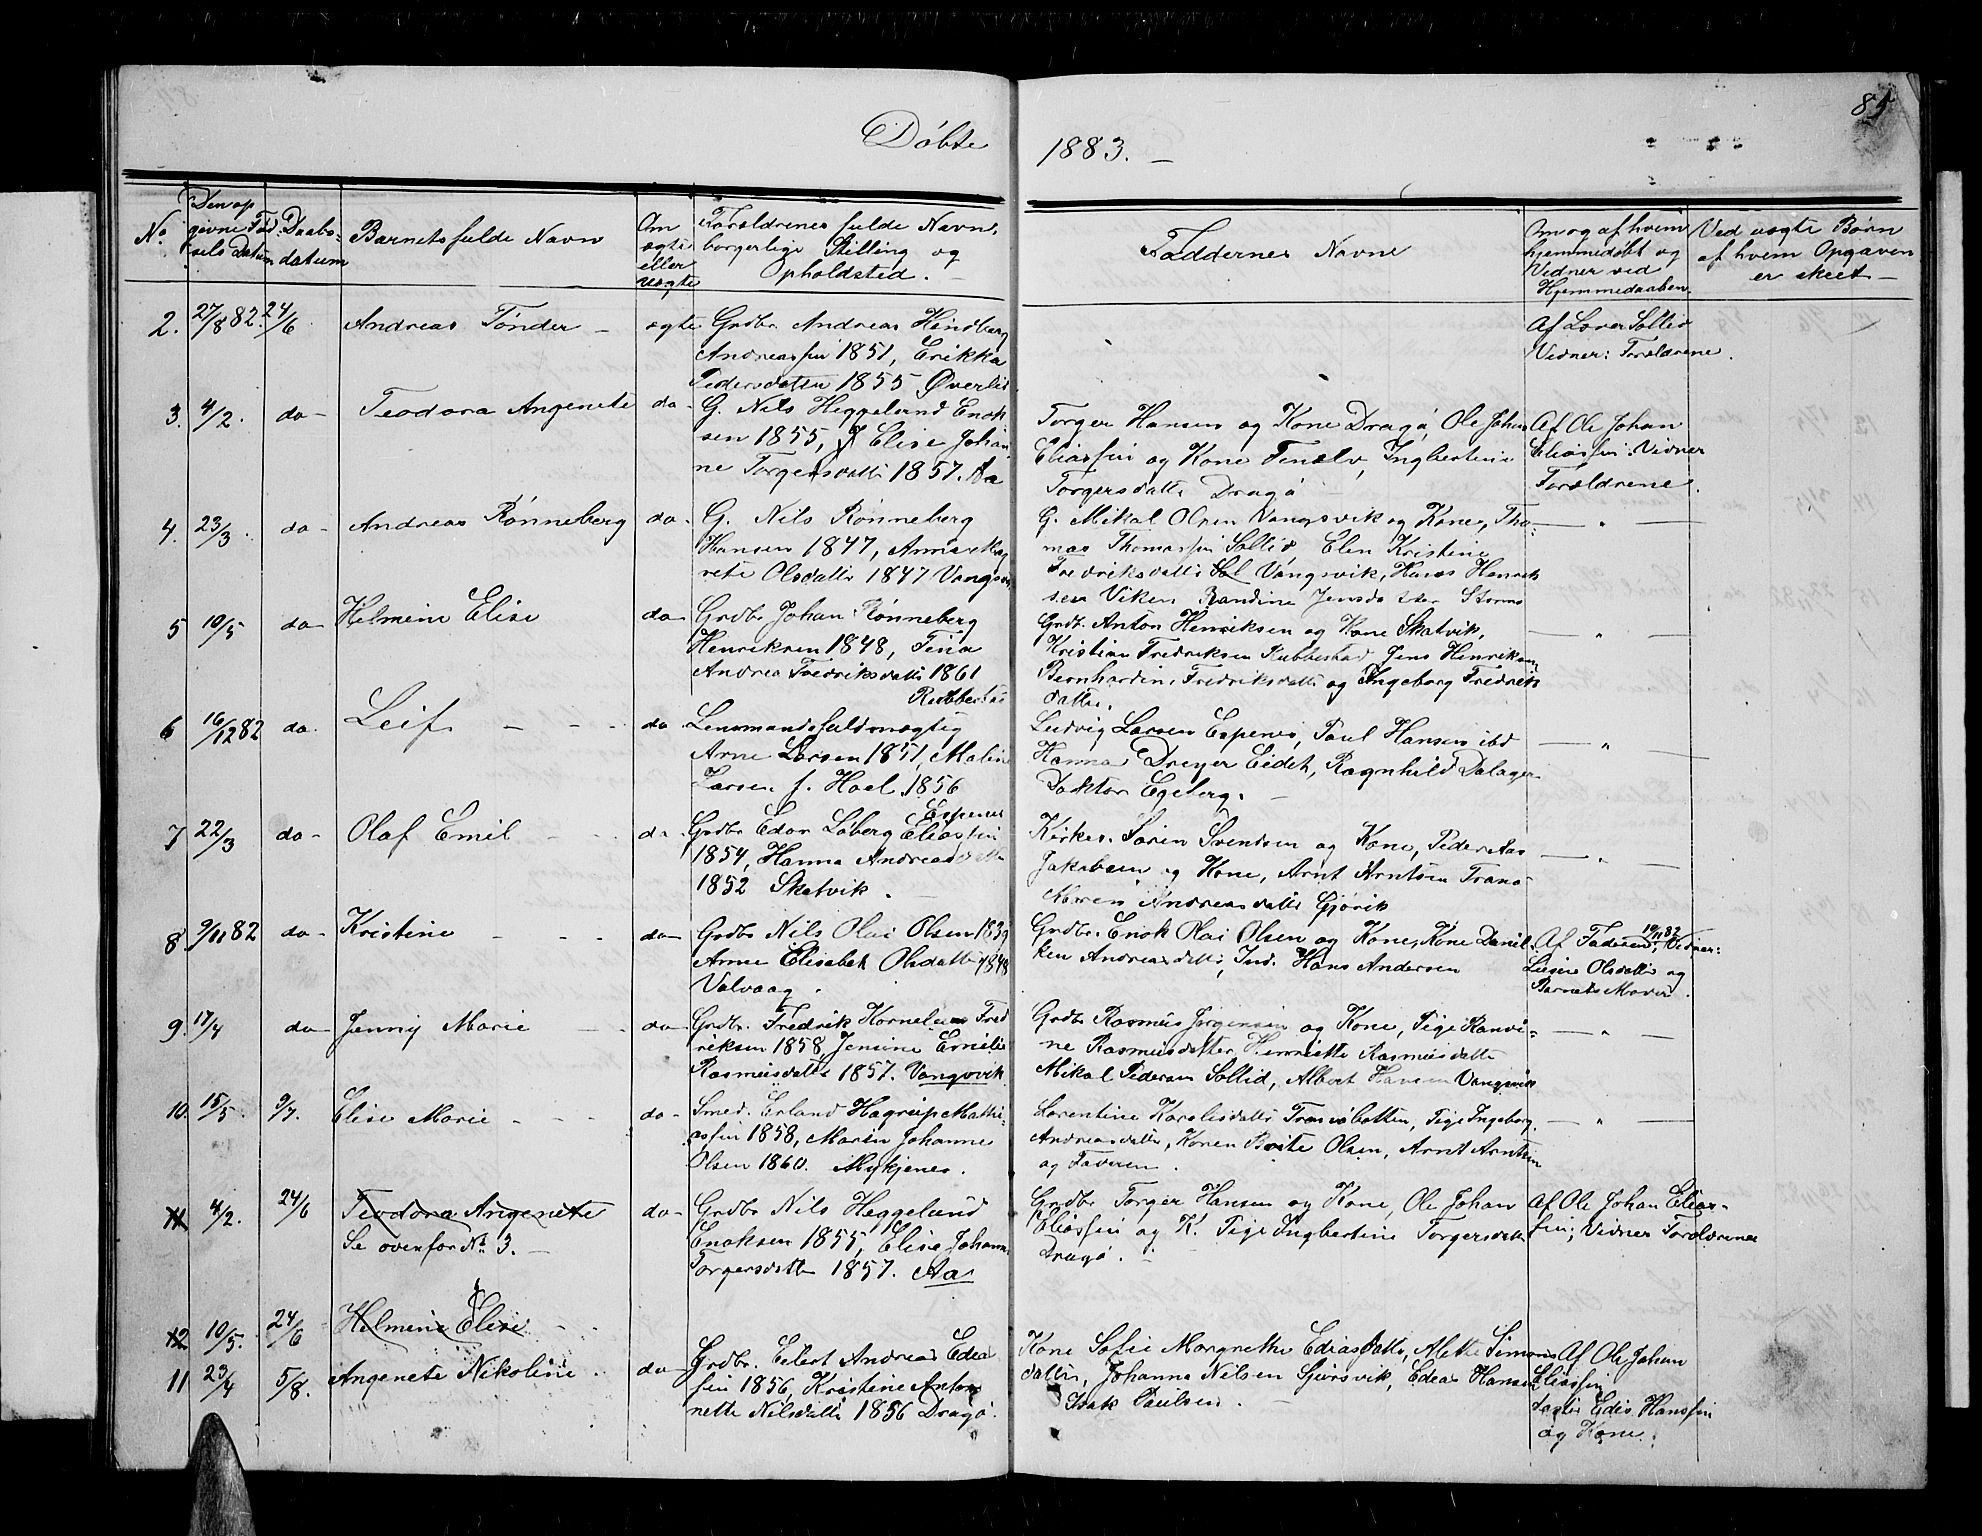 85
Døbte 1883. –
No
Den op
givne Fød
sels Datum
Daabs-
datum
Barnets fulde Navn
Om
ægte
eller
uægte
Forældrenes fulde Navn,
borgerlige Stilling og
Opholdsted. –
Faddernes Navne
Om og af hvem
hjemmedøbt og
Vidner ved
Hjemmedaaben.
Ved uægte Børn
af hvem Opgaven
er skeet –
2. 27/8 82. 24/6 Andreas Tønder – ægte Grdbr Andreas Hindberg
Andreassen 1851, Erikka
Pedersdatter 1855 Øverli
Af Lærer Sollid
Vidner: Forældrene.
3. 4/2. do – Teodora Angenete do – G. Nils Heggelund Enok
sen 1855, Elise Johan
ne Torgersdattr 1857. Aa
Torger Hansen og Kone Dragø, Ole Johan
Eliassen og Kone Tenelv, Ingbertine
Torgersdattr Dragø
Af Ole Johan
Eliassen. Vidner
Forældrene.
4. 23/3 do – Andreas Rønneberg do – G. Nils Rønneberg
Hansen 1847, Anna Mag
rete Olsdattr 1847 Vangsvik
G. Mikal Olsen Vangsvik og Kone, Tho-
mas Thomassen Sollid, Elen Kristine
Fredriksdattr Vangsvik, Hans Henrik
sen Viken, Randine Jensdatter Stormo
— " —
5 10/5 do – Helmine Elise do – Grdbr Johan Rønneberg
Henriksen 1848, Tina
Andrea Fredriksdattr 1861
Rubbestad
Grdb. Anton Henriksen og Kone Skatvik,
Kristian Fredriksen Rubbestad, Jens Henriksen
Bernhardine Fredriksdattr og Ingeborg Fredriks
dattr.
— " —
6 16/12 82 do. Leif – – – do Lensmandsfuldmægtig
Arne Larsen 1851, Maline
Larsen f. Hoel 1856
Espenes
Ludvig Larsen Espenes, Paul Hansen ibd
Hanna Dreyer Eidet, Ragnhild Dalager
Doktor Egeberg. –
— " —
7 22/3 do – Olaf Emil – – do – Grdbr Edor Løberg Eliassen
1854, Hanna Andreasdattr
1852 Skatvik. –
Kirkes. Søren Svendsen og Kone, Peder Aas
Jakobsen og Kone, Arnt Arntsen Tranø
Maren Andreasdattr Gjøvik
— " —
8 9/11 82 do – Kristine – – – do – Grdbr Nils Olai Olsen 1839
Anne Elisabet Olsdattr 1848
Valvaag.
Grdbr. Enok Olai Olsen og Kone, Kone Danil-
ken Andreasdattr, Ind. Hans Andersen
Af Faderen 19/11 82, Vidner:
Lisine Olsdattr og
Barnets Moder.
9. 17/4 do – Jenny Marie – – do – Grdbr. Fredrik Kornelius Fred
riksen 1858, Jensine Emilie
Rasmusdattr 1857. Vangsvik
Grdbr Rasmus Jørgensen og Kone, Pige Ranvi-
ne Rasmusdatter, Henriette Rasmusdattr
Mikal Pedersen Sollid, Albert Hansen Vangsvik
— " —
10. 15/5 9/7. Elise Marie – – – do – Smed. Erland Hagrup Matti-
assen 1858, Maren Johanne
Olsen 1860. Mykjenes.
Lorentine Karolisdattr Tranøbotten, Pige Ingeborg
Andreasdattr, Konen Brite Olsen, Arnt Arntsen
og Faderen.
— " —
11 4/2. 24/6 Teodora Angenete do – Grdbr Nils Heggelund
Se ovenfor No 3. –
Enoksen 1855, Elise Johanne
Torgersdattr 1857. Aa
Grdbr Torger Hansen og Kone, Ole Johan
Eliassen og K. Pige Ingbertine Torgersdattr
Dragø. –
Af Ole Johan Elias-
sen, Vidner Forældrene
12 10/5. 24/6 Helmine Elise –
11 23/4 5/8. Angenete Nikoline. do – Grdbr. Eilert Andreas Edias
sen 1856, Kristine Anton
nette Nilsdattr 1856 Dragø.
Kone Sofie Margrethe Ediasdattr, Mette Simons
dattr, Johanna Nilsen Gjersvik, Edeas Hansen
Isak Paulsen. –
Af Ole Johan
Eliassen
Edis Hanssen
og Kone.